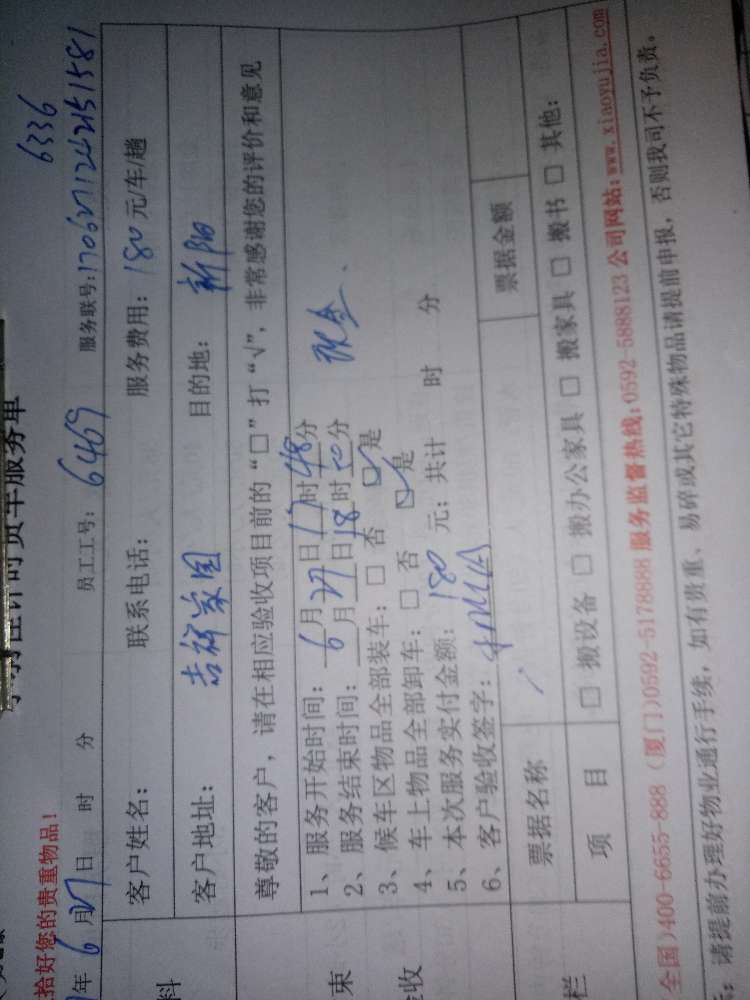 计时货车服务单
拾好您的贵重物品！ 6336
年 6月27日 时 分 员工工号：6469 服务联号：1706271242151581
客户姓名： 联系电话： 服务费用：180元/车/趟
客户地址：吉祥家园 目的地：新阳
尊敬的客户，请在相应验收项目前的“□”打“√”，非常感谢您的评价和意见
1、服务开始时间：6月27日17时48分
2、服务结束时间： 月27日18时50分 现金.
3、候车区物品全部装车：□ 否 ☑ 是
4、车上物品全部卸车：□ 否 ☑ 是
5、本次服务实付金额：180 元；共计 时 分
6、客户验收签字：
票据名称 票据金额
项 目 □ 搬设备 □ 搬办公家具 □ 搬家具 □ 搬书 □ 其他：
全国)400-6655-888 (厦门)0592-5178888 服务监督热线:0592-5888123 公司网站:www.xiaoyujia.com
请提前办理好物业通行手续，如有贵重、易碎或其它特殊物品请提前申报，否则我司不予负责。
料
束
收
栏